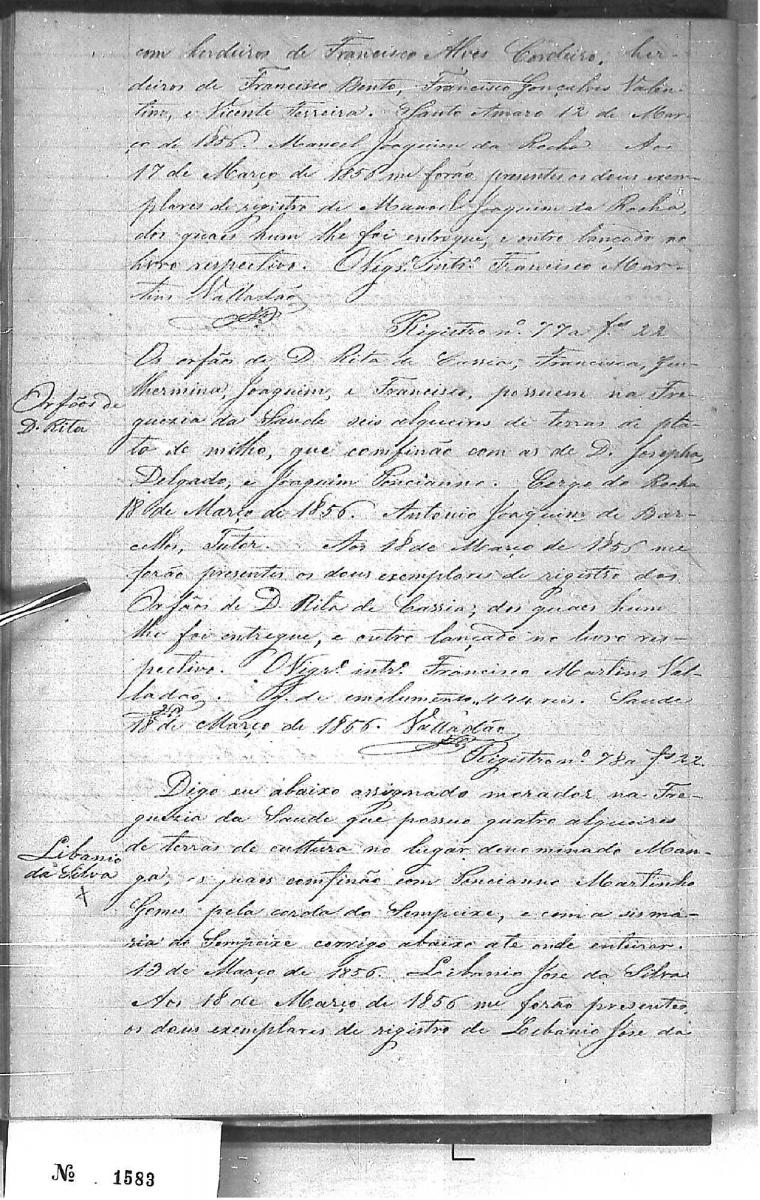 com herdeiros de Francisco Alves Cordeiro, her-
deiros de Francisco Bento, Francisco Gonçalves Valen-
tim, e Vicente Ferreira. Santo Amaro 12 de Mar-
ço de 1856. Manoel Joaquim da Rocha Aos
17 de Março de 1856 me forão presentes os dous exem-
plares de registro de Manoel Joaquim da Rocha,
dos quaes hum lhe foi entregue, e outro lançado no
livro respectivo. O Vigr.º intr.º Francisco Mar-
tins Valladão
Registro nº 77 a fs 22
Orfãos de
D. Rita
Os orfãos de D. Rita de Cassia; Francisca, Gu-
lhermina, Joaquim, e Francisco, possuem na Fre-
guezia da Saude seis alqueires de terras de plan-
to de milho, que comfinão com as de D. Josepha,
Delgado, e Joaquim Poncianno. da Rocha
18 de Março de 1856. Antonio Joaquim de Bar-
cellos, Tutor. Aos 18 de Março de 1856 me
forão presentes os dous exemplares de registro dos
Orfãos de D. Rita de Cassia; dos quaes hum
lhe foi entregue, e outro lançado no livro res-
pectivo. O Vigr.º intr.º Francisco Martins Val-
ladão. de emolumento 444 reis. Saude
18 de Março de 1856. Valladão
Registro nº 78 a fs 22.
Libanio
da Silva
Digo eu abaixo assignado morador na Fre-
guezia da Saude que possuo quatro alqueires
de terras de cultura no lugar denominado Man-
ga, os quaes comfinão com Poncianno Martinho
Gomes pela do Sempeixe, e com a sisma-
ria do Sempeixe corrigo abaixo ate onde enteirar.
13 de Março de 1856. Leibanio José da Silva
Aos 18 de Março de 1856 me forão presentes,
os dous exemplares de registro de Libanio José da
Nº 1583